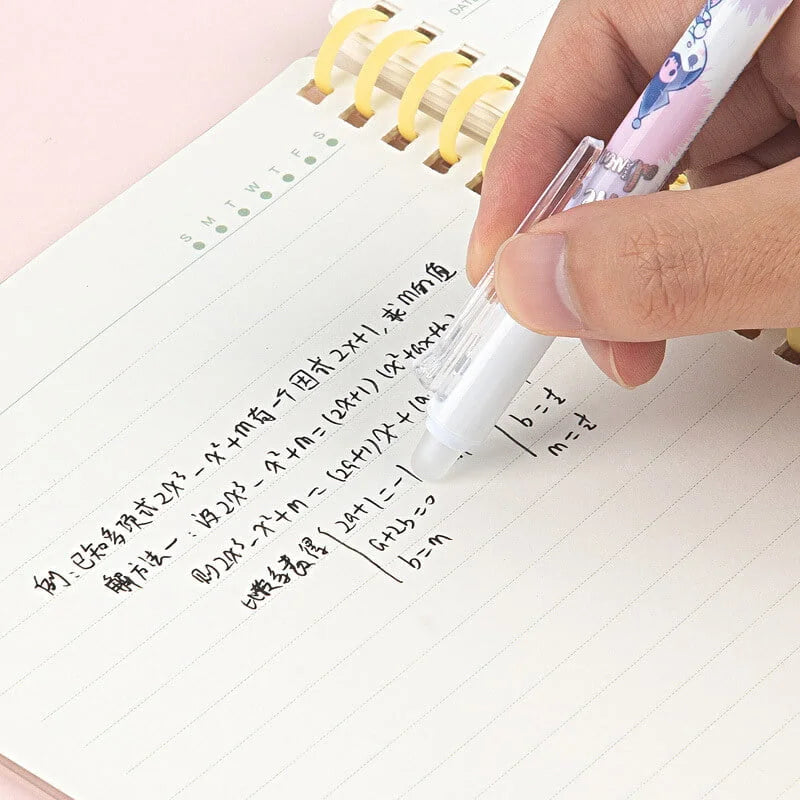 DATE
S M T W T F S
例:已知多项式2x³-x²+m有一个因式2x+1,求m的值
解方法一:设2x³-x²+m=(2x+1)(x²+ax+b)
则2x³-x²+m=(2a+1)x²+(a
比较系数得 2a+1=-1
a+2b=0
b=m
b=½
m=½